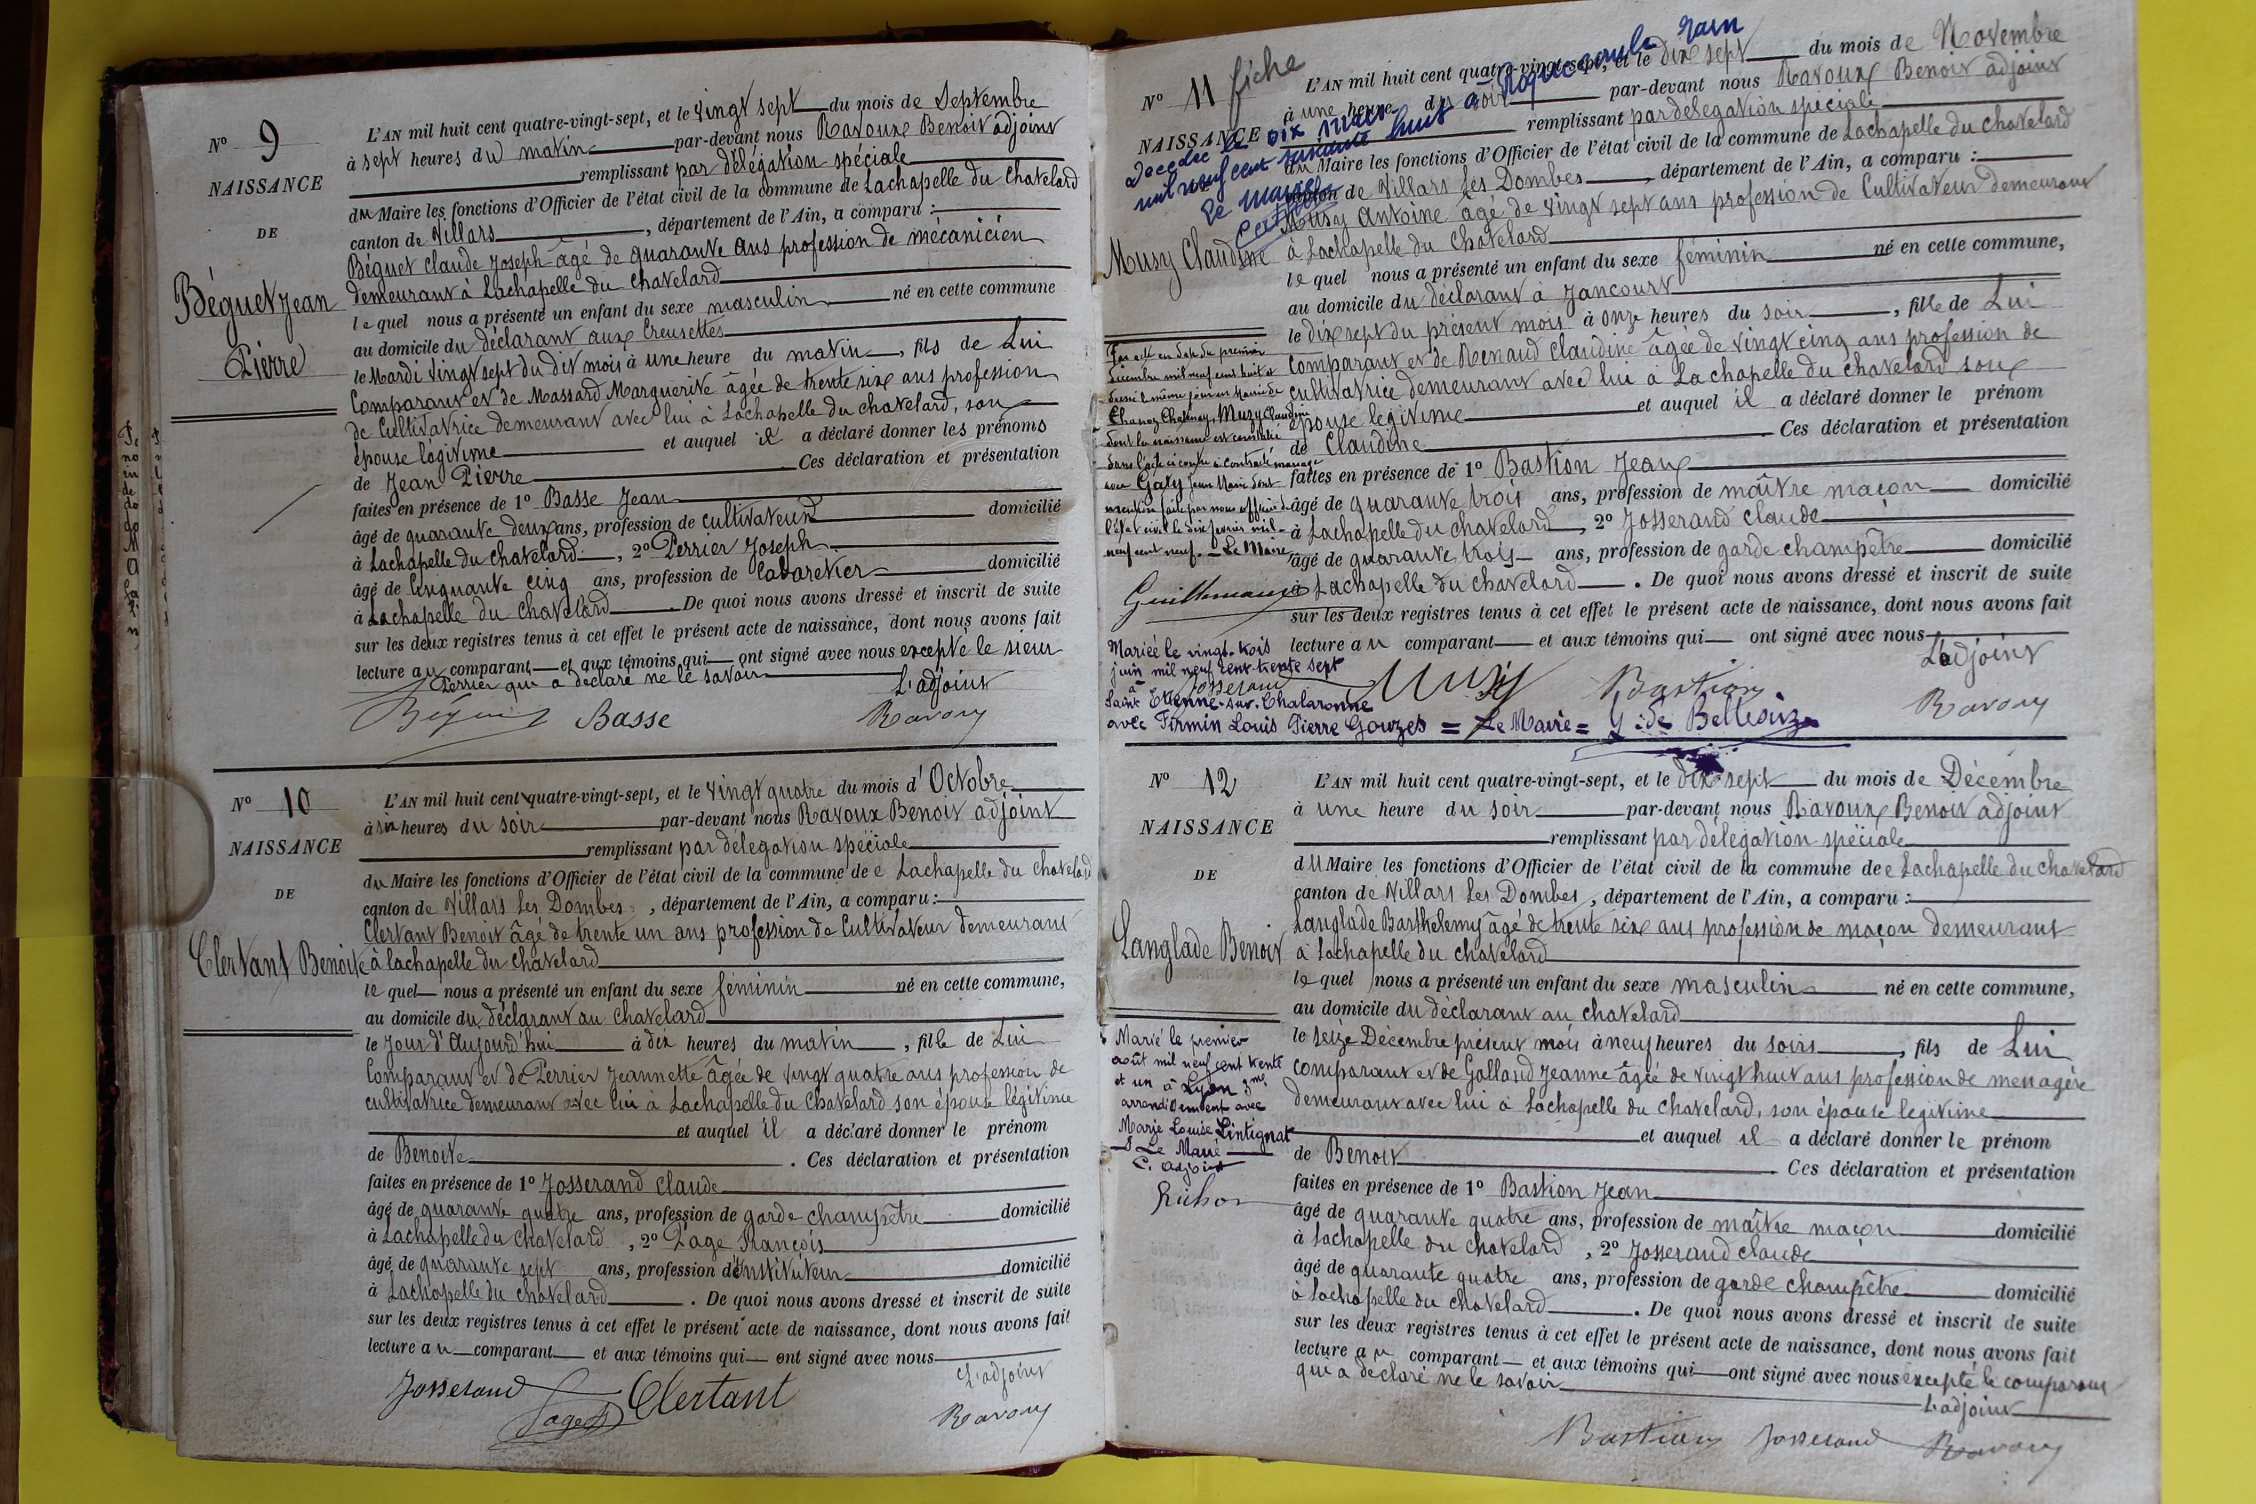 N° 9
NAISSANCE
DE
Béguet Jean
Pierre
L'AN mil huit cent quatre-vingt-sept, et le vingt sept du mois de Septembre
à sept heures du matin par-devant nous Ravoux Benoit adjoint
remplissant par délégation spéciale
du Maire les fonctions d'Officier de l'état civil de la commune de Lachapelle du Chatelard
canton de Villars, département de l'Ain, a comparu :
Béguet Claude Joseph âgé de quarante ans profession de mécanicien
demeurant à Lachapelle du Chatelard
le quel nous a présenté un enfant du sexe masculin né en cette commune
au domicile du déclarant aux Creusettes
le Mardi vingt sept du dit mois à une heure du matin, fils de Lui
Comparant et de Massard Marguerite âgée de trente six ans profession
de Cultivatrice demeurant avec lui à Lachapelle du Chatelard, son
épouse légitime et auquel il a déclaré donner les prénoms
de Jean Pierre Ces déclaration et présentation
faites en présence de 1° Basse Jean
âgé de quarante deux ans, profession de cultivateur domicilié
à Lachapelle du Chatelard, 2° Perrier Joseph
âgé de Cinquante cinq ans, profession de Cabaretier domicilié
à Lachapelle du Chatelard. De quoi nous avons dressé et inscrit de suite
sur les deux registres tenus à cet effet le présent acte de naissance, dont nous avons fait
lecture au comparant et aux témoins qui ont signé avec nous excepté le sieur
Perrier qui a déclaré ne le savoir
L'adjoint
Béguet Basse Ravoux
N° 10
NAISSANCE
DE
Clertant Benoite
L'AN mil huit cent quatre-vingt-sept, et le vingt quatre du mois d'Octobre
à six heures du soir par-devant nous Ravoux Benoit adjoint
remplissant par délégation spéciale
du Maire les fonctions d'Officier de l'état civil de la commune de Lachapelle du Chatelard
canton de Villars Les Dombes, département de l'Ain, a comparu :
Clertant Benoit âgé de trente un ans profession de Cultivateur demeurant
à Lachapelle du Chatelard
le quel nous a présenté un enfant du sexe féminin né en cette commune,
au domicile du déclarant au Chatelard
le jour d'Aujourd'hui à dix heures du matin, fille de Lui
Comparant et de Perrier Jeannette âgée de vingt quatre ans profession de
cultivatrice demeurant avec lui à Lachapelle du Chatelard son épouse légitime
et auquel il a déclaré donner le prénom
de Benoite. Ces déclaration et présentation
faites en présence de 1° Josserand Claude
âgé de quarante quatre ans, profession de garde champêtre domicilié
à Lachapelle du Chatelard, 2° Page François
âgé de quarante sept ans, profession d'instituteur domicilié
à Lachapelle du Chatelard. De quoi nous avons dressé et inscrit de suite
sur les deux registres tenus à cet effet le présent acte de naissance, dont nous avons fait
lecture au comparant et aux témoins qui ont signé avec nous
L'adjoint
Josserand Page Clertant Ravoux
N° 11 fiche
NAISSANCE
Décédée le dix mars
mil neuf cent soixante huit à Roquecourbe Tarn
Le maire
Musy Claudine
L'AN mil huit cent quatre-vingt-sept, et le dix sept du mois de Novembre
à une heure du soir par-devant nous Ravoux Benoit adjoint
remplissant par délégation spéciale
du Maire les fonctions d'Officier de l'état civil de la commune de Lachapelle du Chatelard
canton de Villars Les Dombes, département de l'Ain, a comparu :
Musy Antoine âgé de vingt sept ans profession de Cultivateur demeurant
à Lachapelle du Chatelard
le quel nous a présenté un enfant du sexe féminin né en cette commune,
au domicile du déclarant à Jancourt
le dix sept du présent mois à onze heures du soir, fille de Lui
Comparant et de Renaud Claudine âgée de vingt cinq ans profession de
cultivatrice demeurant avec lui à La chapelle du Chatelard son
épouse légitime et auquel il a déclaré donner le prénom
de Claudine Ces déclaration et présentation
faites en présence de 1° Bastion Jean
âgé de quarante trois ans, profession de maître maçon domicilié
à Lachapelle du Chatelard, 2° Josserand Claude
âgé de quarante trois ans, profession de garde champêtre domicilié
à Lachapelle du Chatelard. De quoi nous avons dressé et inscrit de suite
sur les deux registres tenus à cet effet le présent acte de naissance, dont nous avons fait
lecture au comparant et aux témoins qui ont signé avec nous
L'adjoint
Josserand Musy Bastion Ravoux
Par acte en date du premier
Décembre mil neuf cent huit et
dressé le même jour en Mairie de
Chanoz Chatenay, Muzy Claudine
dont la naissance est constatée
dans l'acte ci contre a contracté mariage
avec Galy Jean Marie dont
mention faite par nous officier de
l'état civil le dix février mil
neuf cent neuf. - Le Maire
Mariée le vingt-trois
juin mil neuf cent-trente sept
à
Saint Etienne-sur-Chalaronne
avec Firmin Louis Pierre Gouzes = Le Maire =
N° 12
NAISSANCE
DE
Langlade Benoit
L'AN mil huit cent quatre-vingt-sept, et le dix-sept du mois de Décembre
à une heure du soir par-devant nous Ravoux Benoit adjoint
remplissant par délégation spéciale
du Maire les fonctions d'Officier de l'état civil de la commune de Lachapelle du Chatelard
canton de Villars Les Dombes, département de l'Ain, a comparu :
Langlade Barthelemy âgé de trente six ans profession de maçon demeurant
à Lachapelle du Chatelard
le quel nous a présenté un enfant du sexe masculin né en cette commune,
au domicile du déclarant au Chatelard
le seize Décembre présent mois à neuf heures du soirs, fils de Lui
comparant et de Golland Jeanne âgée de vingt huit ans profession de menagère
demeurant avec lui à Lachapelle du Chatelard, son épouse légitime
et auquel il a déclaré donner le prénom
de Benoit Ces déclaration et présentation
faites en présence de 1° Bastion Jean
âgé de quarante quatre ans, profession de maître maçon domicilié
à Lachapelle du Chatelard, 2° Josserand Claude
âgé de quarante quatre ans, profession de garde champêtre domicilié
à Lachapelle du Chatelard. De quoi nous avons dressé et inscrit de suite
sur les deux registres tenus à cet effet le présent acte de naissance, dont nous avons fait
lecture au comparant et aux témoins qui ont signé avec nous excepté le comparant
qui a déclaré ne le savoir
L'adjoint
Bastion Josserand Ravoux
Marié le premier
août mil neuf cent trente
et un à Lyon 3me
arrondissement avec
Marie Louise Lintignat
Le Maire